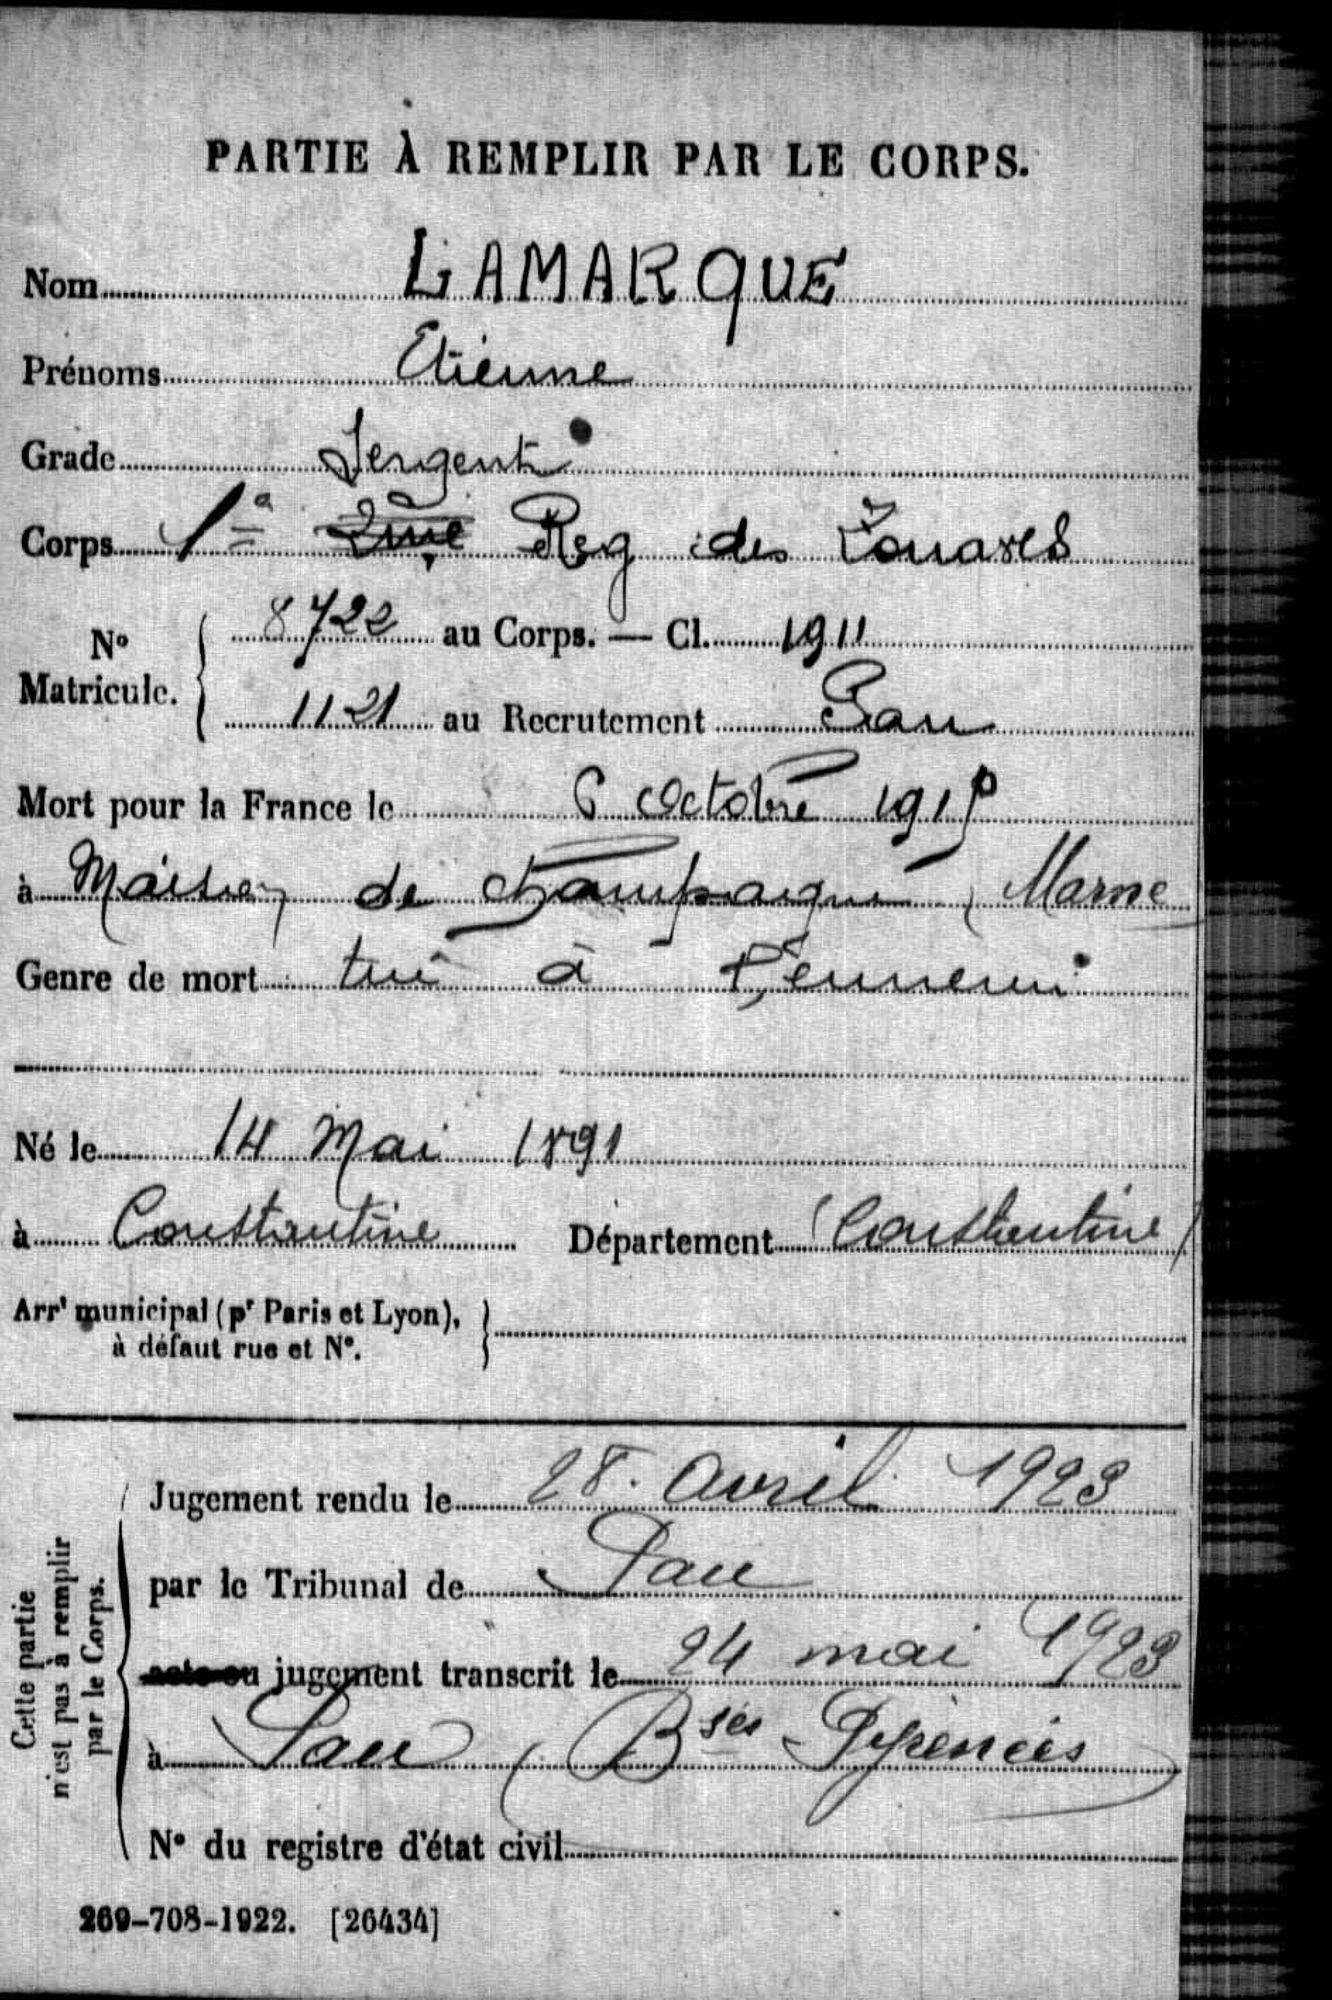 PARTIE À REMPLIR PAR LE CORPS.
Nom LAMARQUE
Prénoms Etienne
Grade Sergent
Corps 1e 2me Reg des Zouaves
N° Matricule. 8722 au Corps. — Cl. 1911
1121 au Recrutement Pau
Mort pour la France le 6 Octobre 1915
à de Champagne (Marne
Genre de mort tué à l'ennemi
Né le 14 Mai 1891
à Constantine Département (Constantine)
Arrt municipal (pr Paris et Lyon),
à défaut rue et N°.
Cette partie n'est pas à remplir par le Corps.
Jugement rendu le 28 Avril 1923
par le Tribunal de Pau
acte ou jugement transcrit le 24 mai 1923
à Pau (Bses Pyrénées)
N° du registre d'état civil
269-708-1922. [26434]